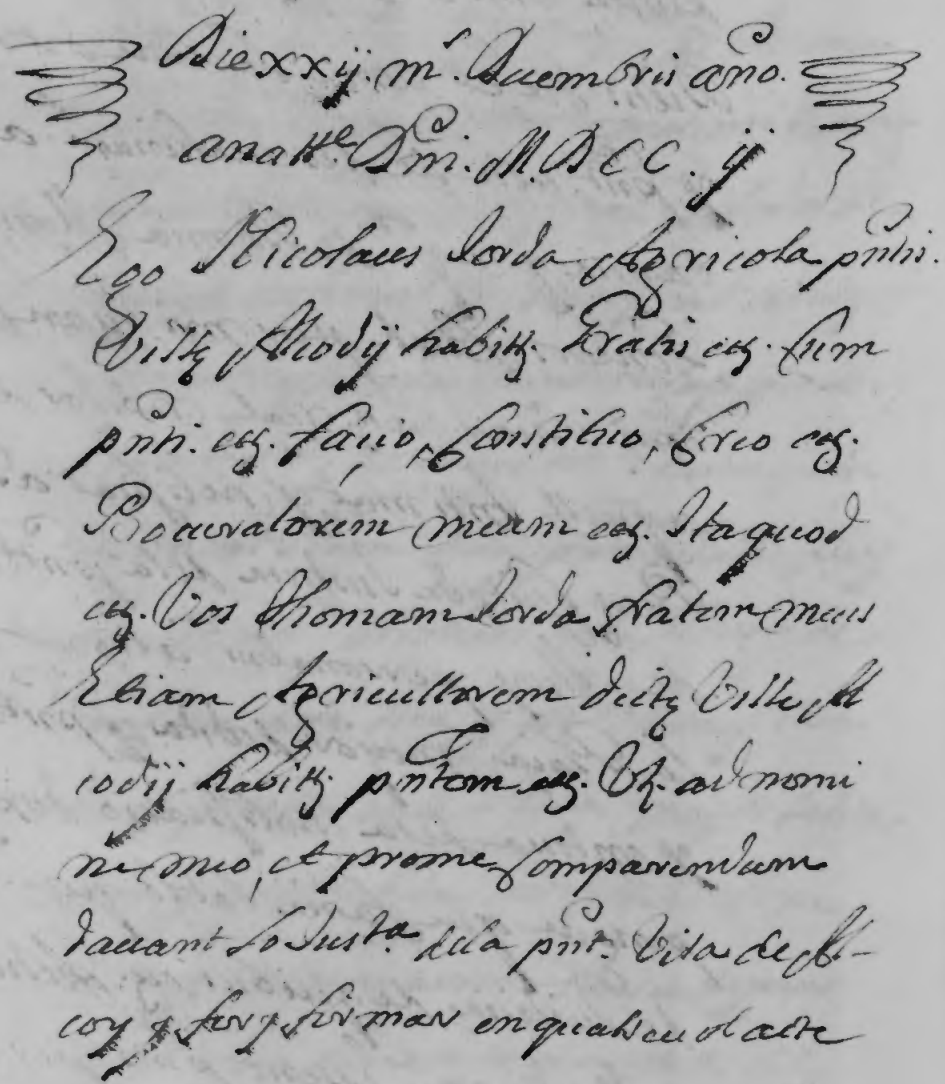 Die xxij. ms. Decembris año.
a natte. Dni. M. D C C. ij
Ego Nicolaus Jorda Agricola pñtis.
Ville Alcodij habitt. Gratis etz. cum
pnti. etz. facio, constituo, creo etz.
Procuratorem meum etz. Ita quod
etz. Vos Thomam Jorda fratrem meus
Etiam Agricultorem dicte Ville Al
codij habitt. pntem etz. Vt. ad nomi
ne meo, et pro me comparendum
dauant lo Justa. dela pñt. Vila de Al-
coy y fer y firmar en qualseuol acte